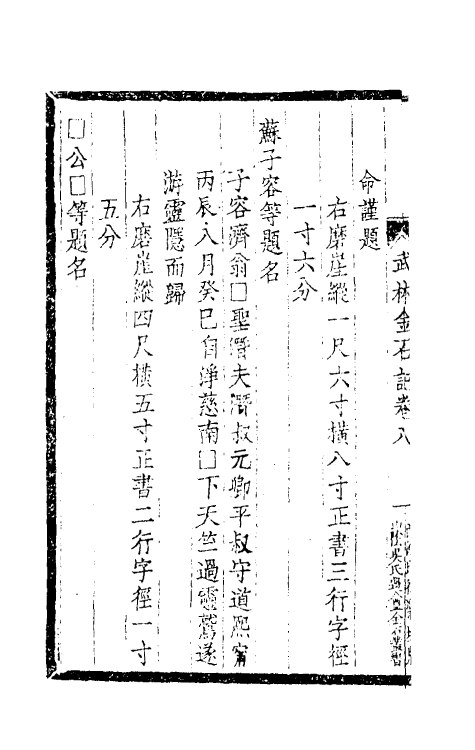 武林金石記卷八
一
命謹題
右磨崖縱一尺六寸橫八寸正書三行字徑
一寸六分
蘇子容等題名
子容濟翁□聖潛夫潛叔元卿平叔守道熙甯
丙辰八月癸巳自淨慈南□下天竺過靈鷲遂
游靈隱而歸
右磨崖縱四尺橫五寸正書二行字徑一寸
五分
□公□等題名